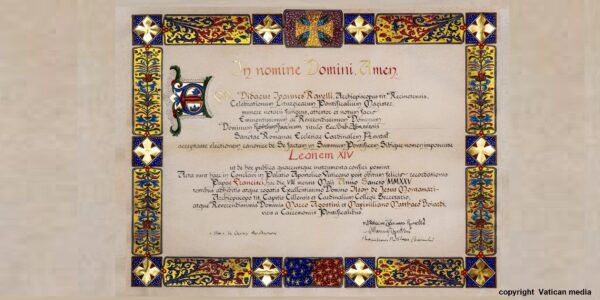 In nomine Domini, Amen
Didacus Ioannes Ravelli, Archiepiscopus tit. Recinetensis,
Celebrationum Liturgicarum Pontificalium Magister
munere notarii fungens, attestor et notum facio
Eminentissimum ac Reverendissimum Dominum
Dominum titulo Albanensis
Sanctae Romanae Ecclesiae Cardinalem Prevost
acceptasse electionem canonice de Se factam in Summum Pontificem Sibique nomen imposuisse
Leonem XIV
ut de hoc publica quaecumque instrumenta confici possint.
Acta sunt haec in Conclavi in Palatio Apostolico Vaticano post obitum felicis recordationis
Papae Francisci, hac die VIII mensis Maii Anno Sancto MMXXV
testibus adhibitis atque rogatis Excellentissimo Domino Ilson de Jesus Montanari
Archiepiscopo tit. Capitis Cillensis et Cardinalium Collegii Secretario,
atque Reverendissimis Dominis Marco Agostini et Maximiliano Matthaeo Boiardi
viris a Caeremoniis Pontificalibus
copyright Vatican media